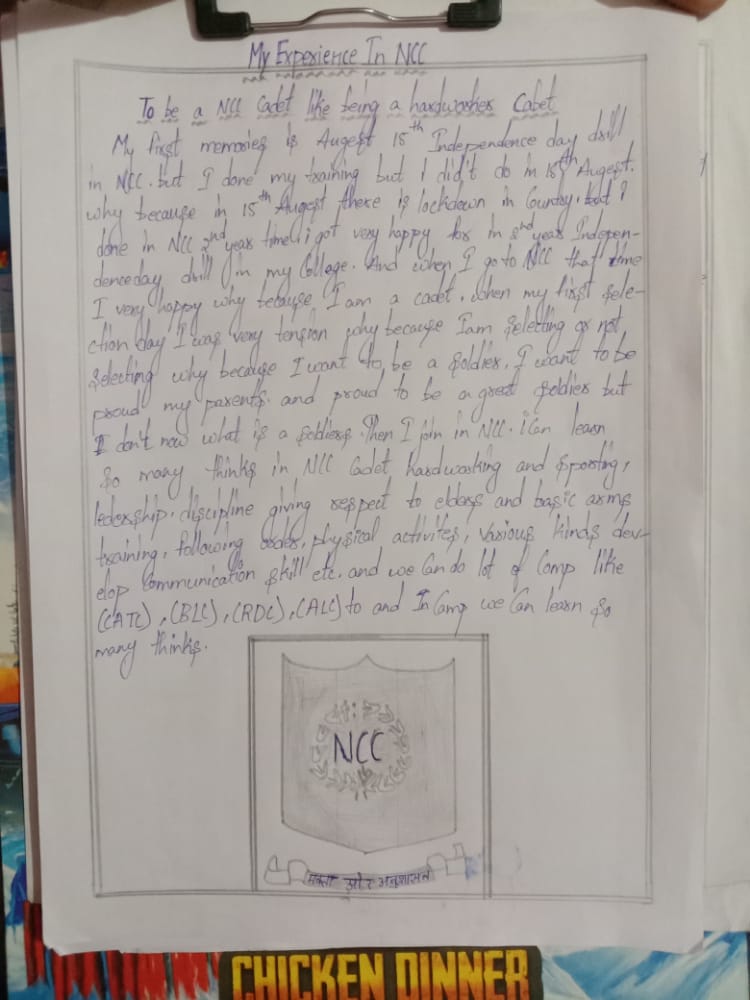 My Experience In NCC
To be a NCC Cadet like being a hardworker Cadet
My first memories is Augest 15th Independence day drill
in NCC. but I done my training but i did't do in 15th Augest.
why because in 15th Augest there is lockdown in Country. but i
done in NCC 2nd year time. i got very happy for in 2nd year Indepen-
denceday drill in my Collage. And when I go to NCC that time
I very happy why because I am a cadet. when my first sele-
ction day I was very tension why because I am selecting or not
selecting why because I want to be a soldier. I want to be
proud my parents. and proud to be a great soldier but
I don't now what is a soldiers. Then I join in NCC. i can learn
so many thinks in NCC Cadet hardworking and sporting,
ledership. discipline giving respect to elders and basic arms
training, following order, physical activites, various kinds dev-
elop communication skill etc. and we can do lot of Camp like
(CATC), (BLC), (RDC), (ALC) to and In Camp we Can learn so
many thinks.
NCC
एकता और अनुशासन
CHICKEN DINNER